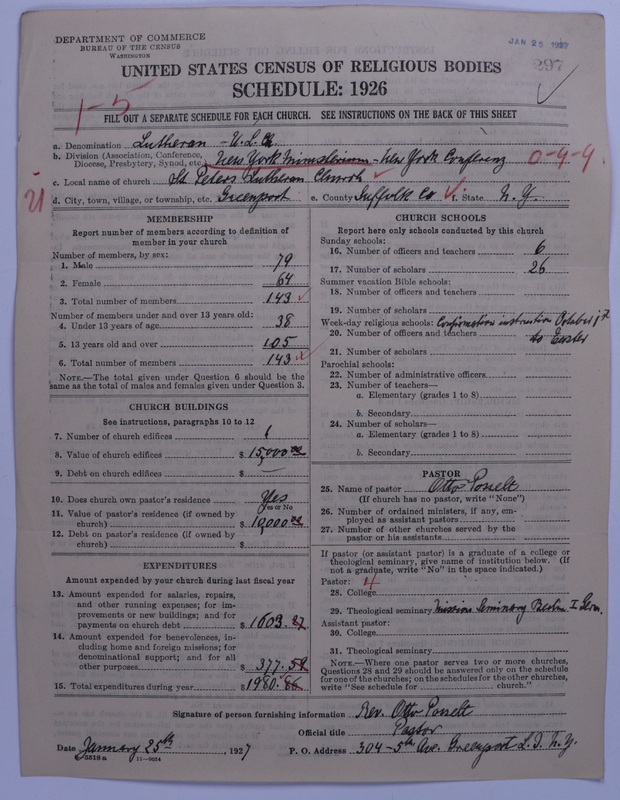 DEPARTMENT OF COMMERCE
BUREAU OF THE CENSUS
WASHINGTON
JAN 25 1927
297
UNITED STATES CENSUS OF RELIGIOUS BODIES
SCHEDULE: 1926
1-5
FILL OUT A SEPARATE SCHEDULE FOR EACH CHURCH. SEE INSTRUCTIONS ON THE BACK OF THIS SHEET
a. Denomination Lutheran - U.L.Ch.
b. Division (Association, Conference, Diocese, Presbytery, Synod, etc.) New York Ministerium - New York Conference 0-4-9
c. Local name of church St Peters Lutheran Church
d. City, town, village, or township, etc. Greenport e. County Suffolk Co f. State N.Y.
MEMBERSHIP
Report number of members according to definition of
member in your church
Number of members, by sex:
1. Male 79
2. Female 64
3. Total number of members 143
Number of members under and over 13 years old:
4. Under 13 years of age 38
5. 13 years old and over 105
6. Total number of members 143
NOTE.—The total given under Question 6 should be the
same as the total of males and females given under Question 3.
CHURCH BUILDINGS
See instructions, paragraphs 10 to 12
7. Number of church edifices 1
8. Value of church edifices $ 15,000
9. Debt on church edifices $ —
10. Does church own pastor's residence Yes
Yes or No
11. Value of pastor's residence (if owned by
church) $ 10,000
12. Debt on pastor's residence (if owned by
church) $
EXPENDITURES
Amount expended by your church during last fiscal year
13. Amount expended for salaries, repairs,
and other running expenses; for im-
provements or new buildings; and for
payments on church debt $ 1603.87
14. Amount expended for benevolences, in-
cluding home and foreign missions; for
denominational support; and for all
other purposes $ 377.58
15. Total expenditures during year $ 1980.86
CHURCH SCHOOLS
Report here only schools conducted by this church
Sunday schools:
16. Number of officers and teachers 6
17. Number of scholars 26
Summer vacation Bible schools:
18. Number of officers and teachers
19. Number of scholars
Week-day religious schools: Confirmation instruction October
20. Number of officers and teachers to Easter
21. Number of scholars
Parochial schools:
22. Number of administrative officers
23. Number of teachers—
a. Elementary (grades 1 to 8)
b. Secondary
24. Number of scholars—
a. Elementary (grades 1 to 8)
b. Secondary
PASTOR
25. Name of pastor Otto Posselt
(If church has no pastor, write "None")
26. Number of ordained ministers, if any, em-
ployed as assistant pastors
27. Number of other churches served by the
pastor or his assistants
If pastor (or assistant pastor) is a graduate of a college or
theological seminary, give name of institution below. (If
not a graduate, write "No" in the space indicated.)
Pastor: 4
28. College
29. Theological seminary Mission Seminary Berlin I Germ.
Assistant pastor:
30. College
31. Theological seminary
NOTE.—Where one pastor serves two or more churches,
Questions 28 and 29 should be answered only on the schedule
for one of the churches; on the schedules for the other churches,
write "See schedule for church."
Signature of person furnishing information Rev. Otto Posselt
Official title Pastor
Date January 25th, 1927 P. O. Address 304 - 5th Ave. Greenport L.I. N.Y.
8-5518 a 11-9024